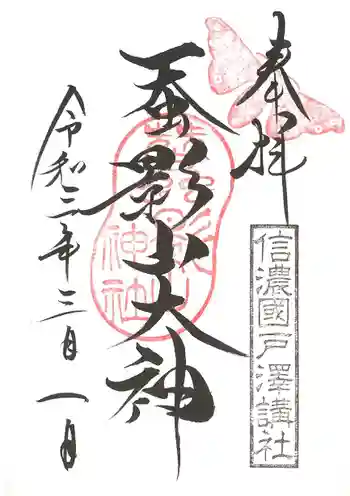 奉拝
信濃國戸澤講社
蚕影山大神
神社
令和二年三月一日